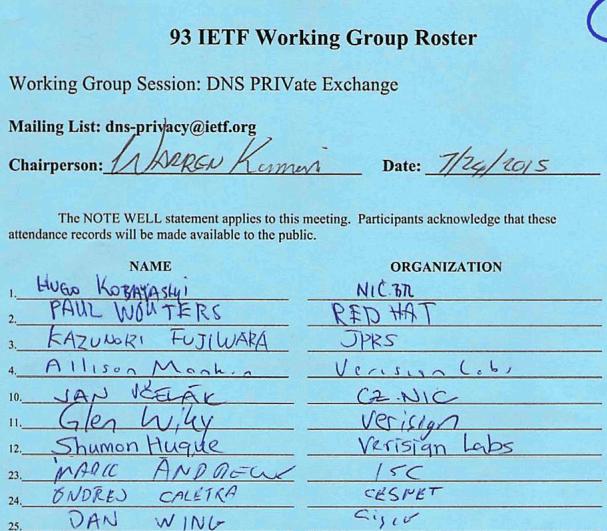 93 IETF Working Group Roster
Working Group Session: DNS PRIVate Exchange
Mailing List: dns-privacy@ietf.org
Chairperson: WARREN Kumari Date: 7/24/2015
The NOTE WELL statement applies to this meeting. Participants acknowledge that these
attendance records will be made available to the public.
NAME ORGANIZATION
1. HUGO KOBAYASHI NIC.BR
2. PAUL WOUTERS RED HAT
3. KAZUNORI FUJIWARA JPRS
4. Allison Mankin Verisign Labs
10. JAN VČELÁK CZ.NIC
11. Glen Wiley Verisign
12. Shumon Huque Verisign Labs
23. MARK ANDREWS ISC
24. ONDREJ CALETKA CESNET
25. DAN WING Cisco